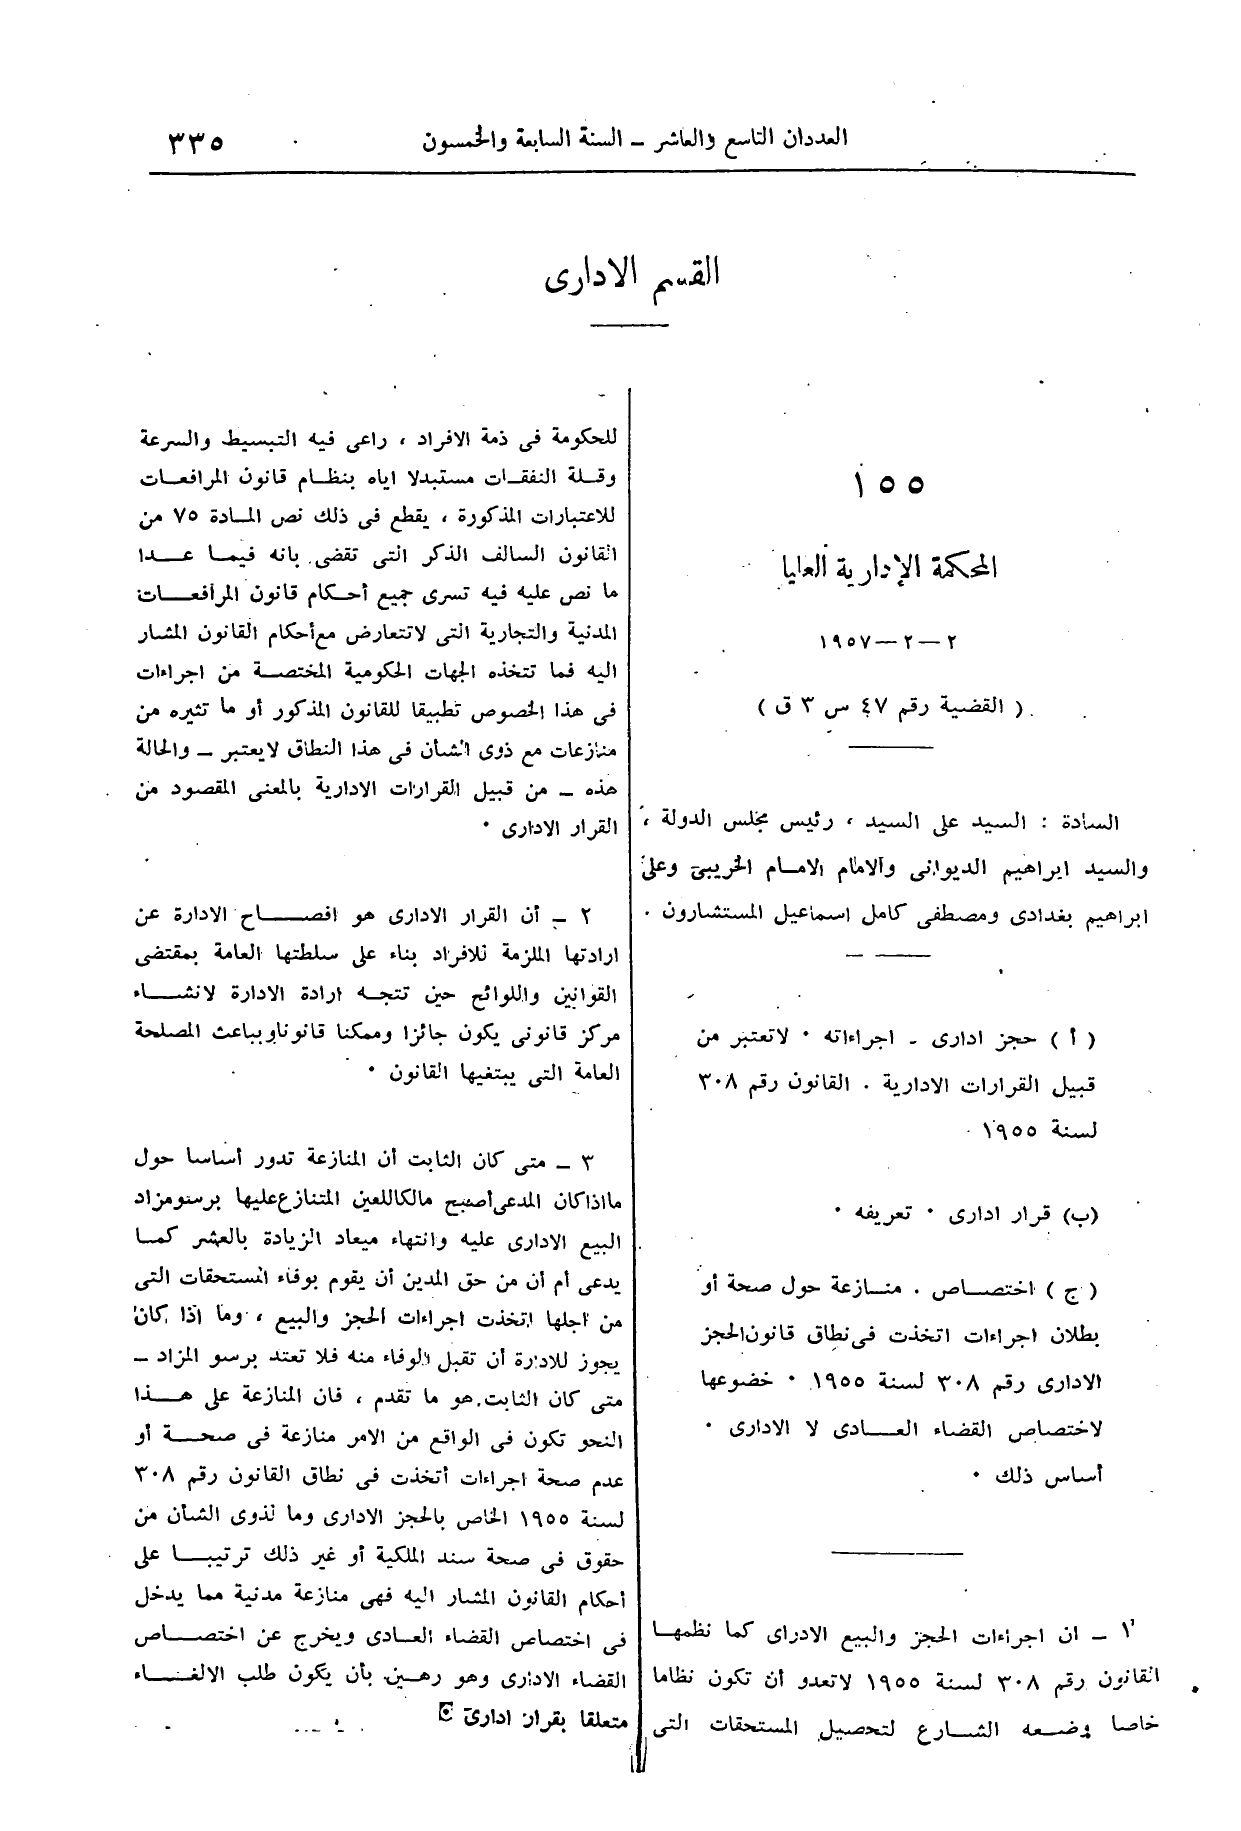 العددان التاسع والعاشر – السنة السابعة والخمسون
٣٣٥
القسم الادارى
١٥٥
المحكمة الإدارية العليا
٢ – ٢ – ١٩٥٧
( القضية رقم ٤٧ س ٣ ق )
السادة : السيد على السيد ، رئيس مجلس الدولة ،
والسيد ابراهيم الديوانى والامام الامام الخريبى وعلى
ابراهيم بغدادى ومصطفى كامل اسماعيل المستشارون .
( أ ) حجز ادارى – اجراءاته . لاتعتبر من
قبيل القرارات الادارية . القانون رقم ٣٠٨
لسنة ١٩٥٥
(ب) قرار ادارى . تعريفه .
( ج ) اختصاص . منازعة حول صحة أو
بطلان اجراءات اتخذت فى نطاق قانون الحجز
الادارى رقم ٣٠٨ لسنة ١٩٥٥ . خضوعها
لاختصاص القضاء العادى لا الادارى .
أساس ذلك .
١ – ان اجراءات الحجز والبيع الادراى كما نظمها
القانون رقم ٣٠٨ لسنة ١٩٥٥ لاتعدو أن تكون نظاما
خاصا وضعه الشارع لتحصيل المستحقات التى
للحكومة فى ذمة الافراد ، راعى فيه التبسيط والسرعة
وقلة النفقات مستبدلا اياه بنظام قانون المرافعات
للاعتبارات المذكورة ، يقطع فى ذلك نص المادة ٧٥ من
القانون السالف الذكر التى تقضى بانه فيما عدا
ما نص عليه فيه تسرى جميع أحكام قانون المرافعات
المدنية والتجارية التى لاتتعارض مع أحكام القانون المشار
اليه فما تتخذه الجهات الحكومية المختصة من اجراءات
فى هذا الخصوص تطبيقا للقانون المذكور أو ما تثيره من
منازعات مع ذوى الشأن فى هذا النطاق لايعتبر – والحالة
هذه – من قبيل القرارات الادارية بالمعنى المقصود من
القرار الادارى .
٢ – أن القرار الادارى هو افصاح الادارة عن
ارادتها الملزمة للافراد بناء على سلطتها العامة بمقتضى
القوانين واللوائح حين تتجه ارادة الادارة لانشاء
مركز قانونى يكون جائزا وممكنا قانونا وبباعث المصلحة
العامة التى يبتغيها القانون .
٣ – متى كان الثابت أن المنازعة تدور أساسا حول
مااذا كان المدعى أصبح مالكا للعين المتنازع عليها برسو مزاد
البيع الادارى عليه وانتهاء ميعاد الزيادة بالعشر كما
يدعى أم أن من حق المدين أن يقوم بوفاء المستحقات التى
من اجلها اتخذت اجراءات الحجز والبيع ، وما اذا كان
يجوز للادارة أن تقبل الوفاء منه فلا تعتد برسو المزاد –
متى كان الثابت هو ما تقدم ، فان المنازعة على هذا
النحو تكون فى الواقع من الامر منازعة فى صحة أو
عدم صحة اجراءات أتخذت فى نطاق القانون رقم ٣٠٨
لسنة ١٩٥٥ الخاص بالحجز الادارى وما لذوى الشأن من
حقوق فى صحة سند الملكية أو غير ذلك ترتيبا على
أحكام القانون المشار اليه فهى منازعة مدنية مما يدخل
فى اختصاص القضاء العادى ويخرج عن اختصاص
القضاء الادارى وهو رهين بأن يكون طلب الالغاء
متعلقا بقرار ادارى